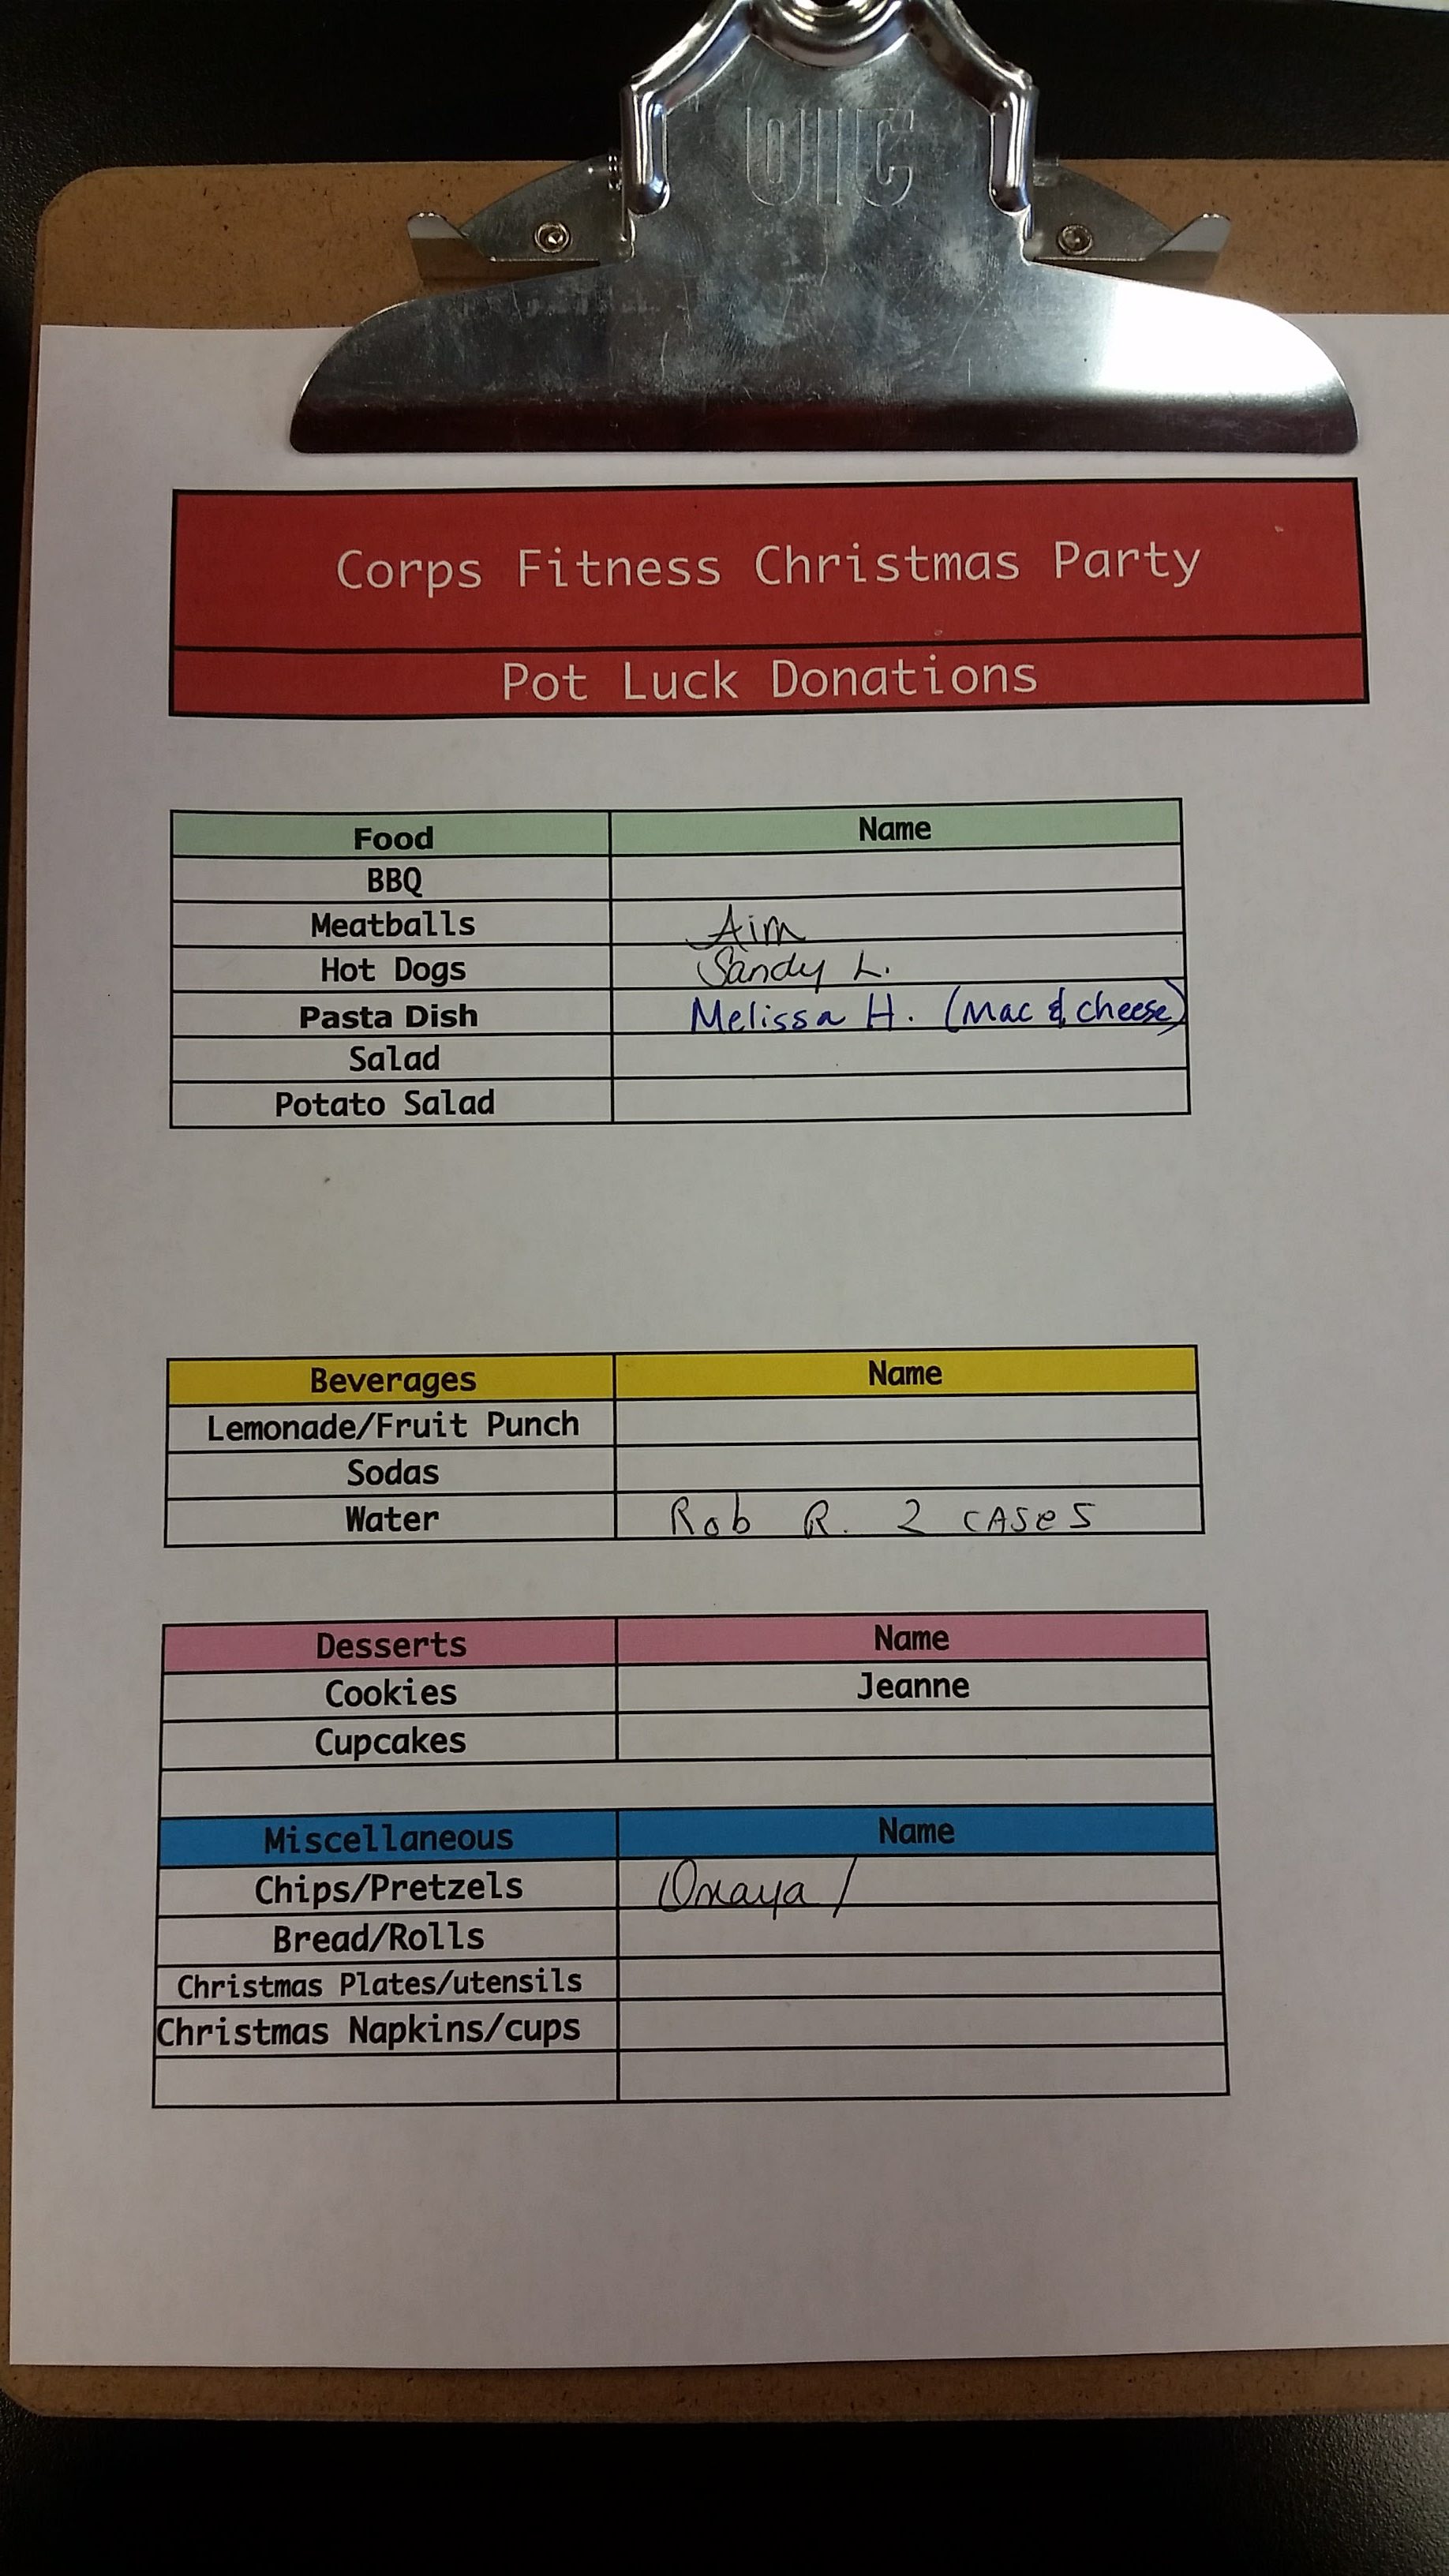 UIC
Corps Fitness Christmas Party
Pot Luck Donations
Food Name
BBQ
Meatballs Aim
Hot Dogs Sandy L.
Pasta Dish Melissa H. (Mac & cheese)
Salad
Potato Salad
Beverages Name
Lemonade/Fruit Punch
Sodas
Water Rob R. 2 cases
Desserts Name
Cookies Jeanne
Cupcakes
Miscellaneous Name
Chips/Pretzels Omaya /
Bread/Rolls
Christmas Plates/utensils
Christmas Napkins/cups